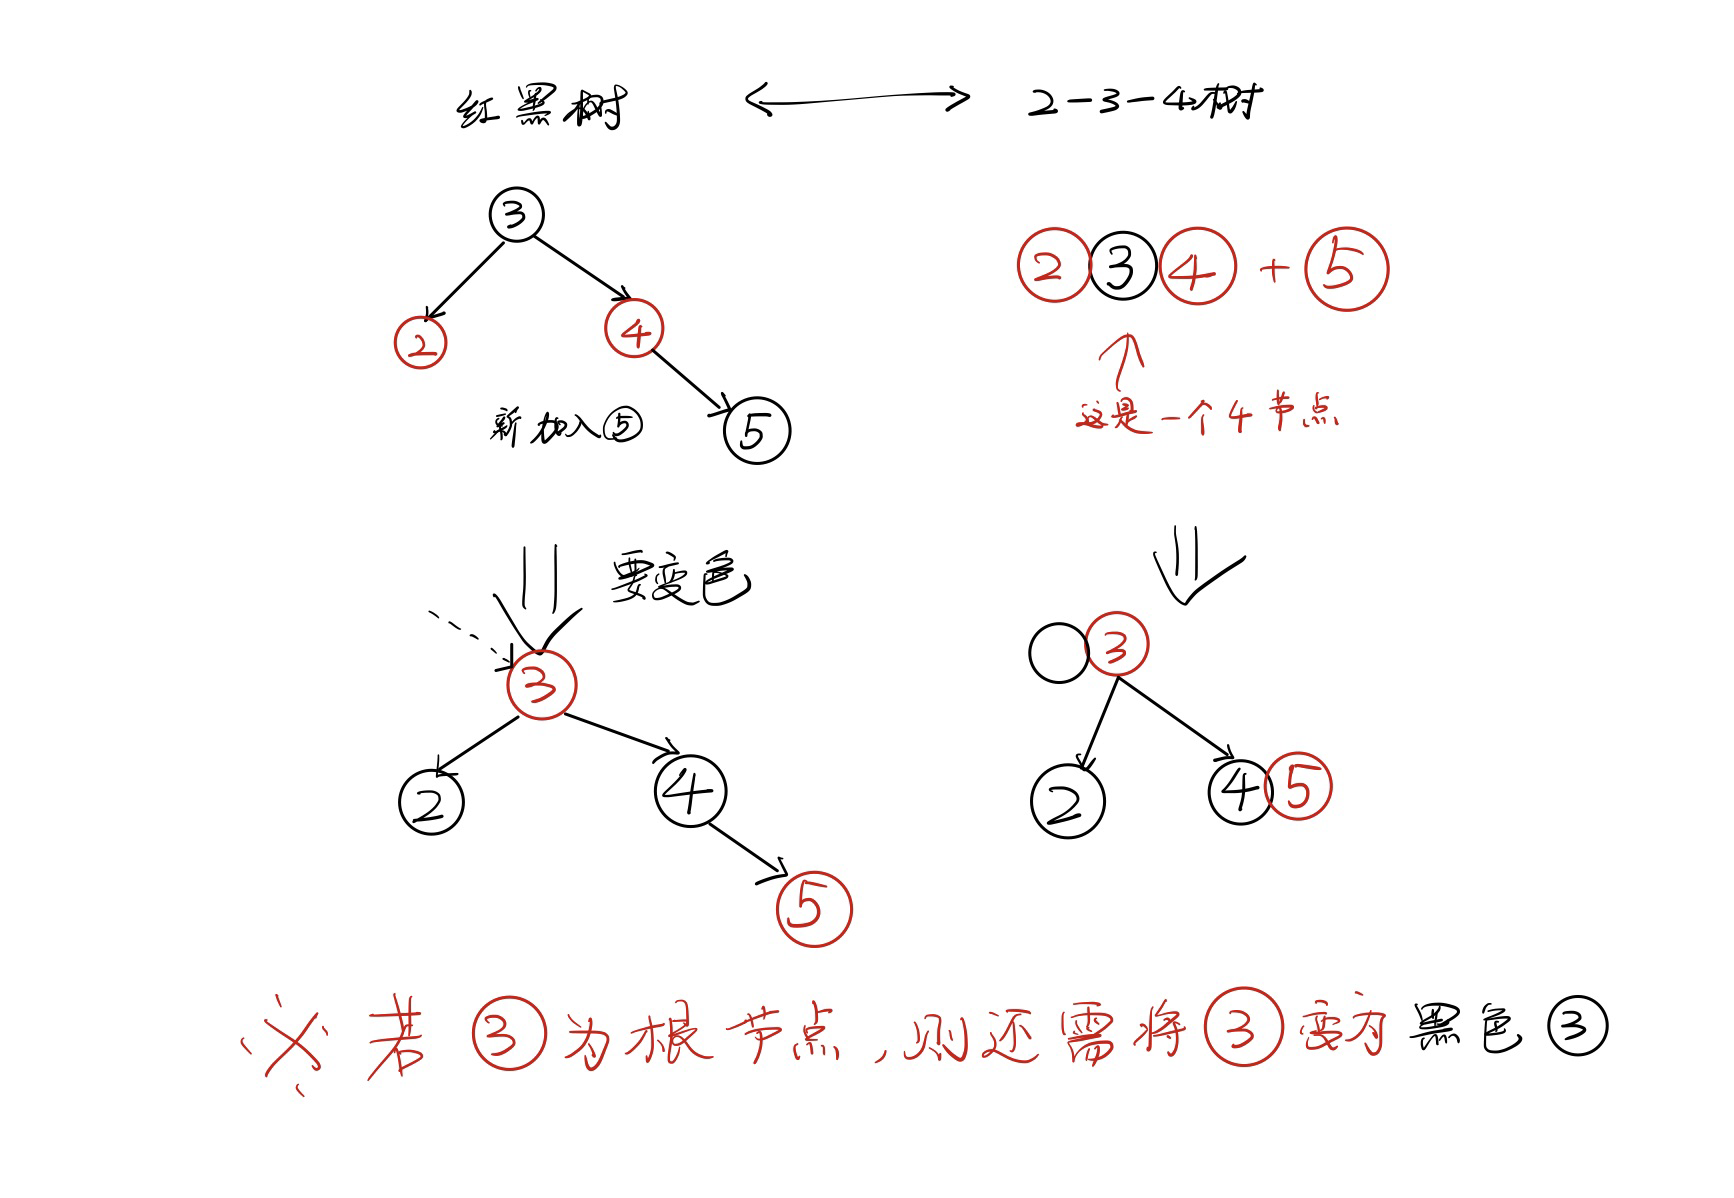 红黑树 2-3-4树
3
2 4
新加入⑤ 5
2 3 4 + 5
这是一个4节点
要变色
3
2 4
5
3
2 4 5
※ 若③为根节点,则还需将③变为黑色③